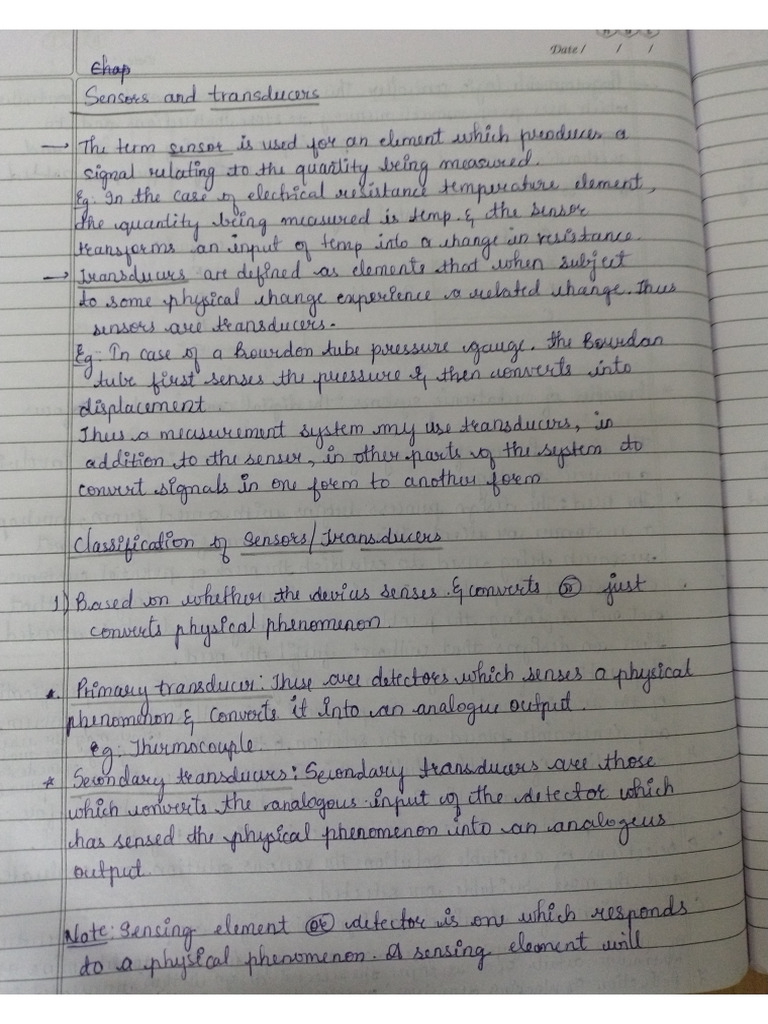 Date / / /
Chap
Sensors and transducers
→ The term sensor is used for an element which produces a
signal relating to the quantity being measured.
Eg: In the case of electrical resistance temperature element,
the quantity being measured is temp. & the sensor
transforms an input of temp into a change in resistance.
→ Transducers are defined as elements that when subject
to some physical change experience a related change. Thus
sensors are transducers.
Eg: In case of a Bourdon tube pressure gauge. the Bourdan
tube first senses the pressure & then converts into
displacement.
Thus a measurement system my use transducers, in
addition to the senser, in other parts of the system to
convert signals in one form to another form
Classification of Sensors/Transducers
1) Based on whether the devices senses & converts or just
converts physical phenomenon
* Primary transducer: These are detectors which senses a physical
phenomenon & converts it into an analogue output.
Eg: Thermocouple
* Secondary transducers: Secondary transducers are those
which converts the analogous input of the detector which
has sensed the physical phenomenon into an analogeus
output.
Note: Sensing element or detector is one which responds
to a physical phenomenon. A sensing element will